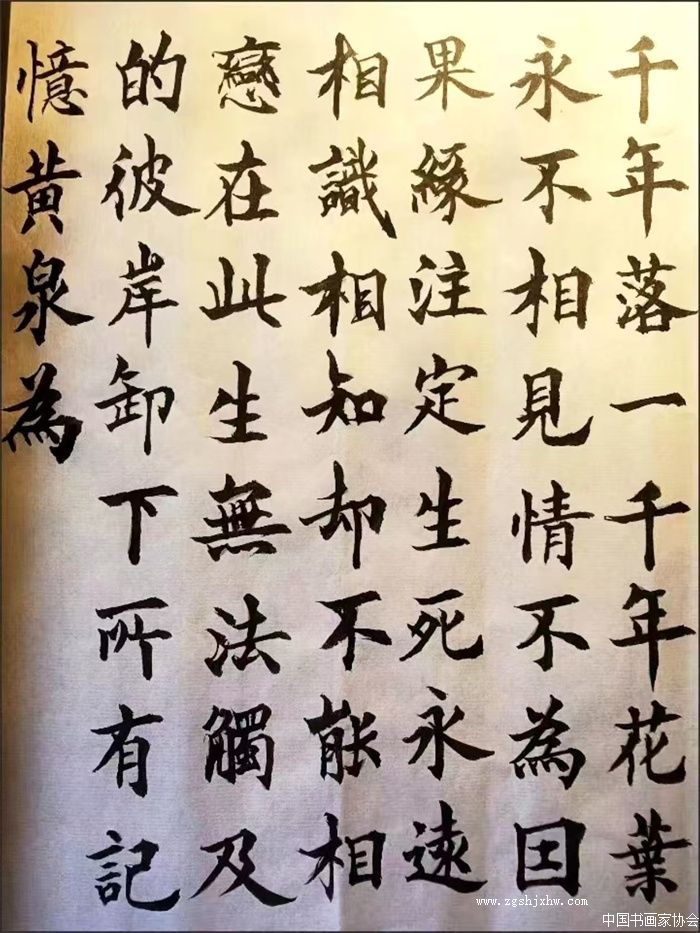 千年落一千年花葉
永不相見情不為因
果緣注定生死永遠
相識相知却不能相
戀在此生無法觸及
的彼岸卸下所有記
憶黄泉為
www.zgshjxhw.com
中国书画家协会